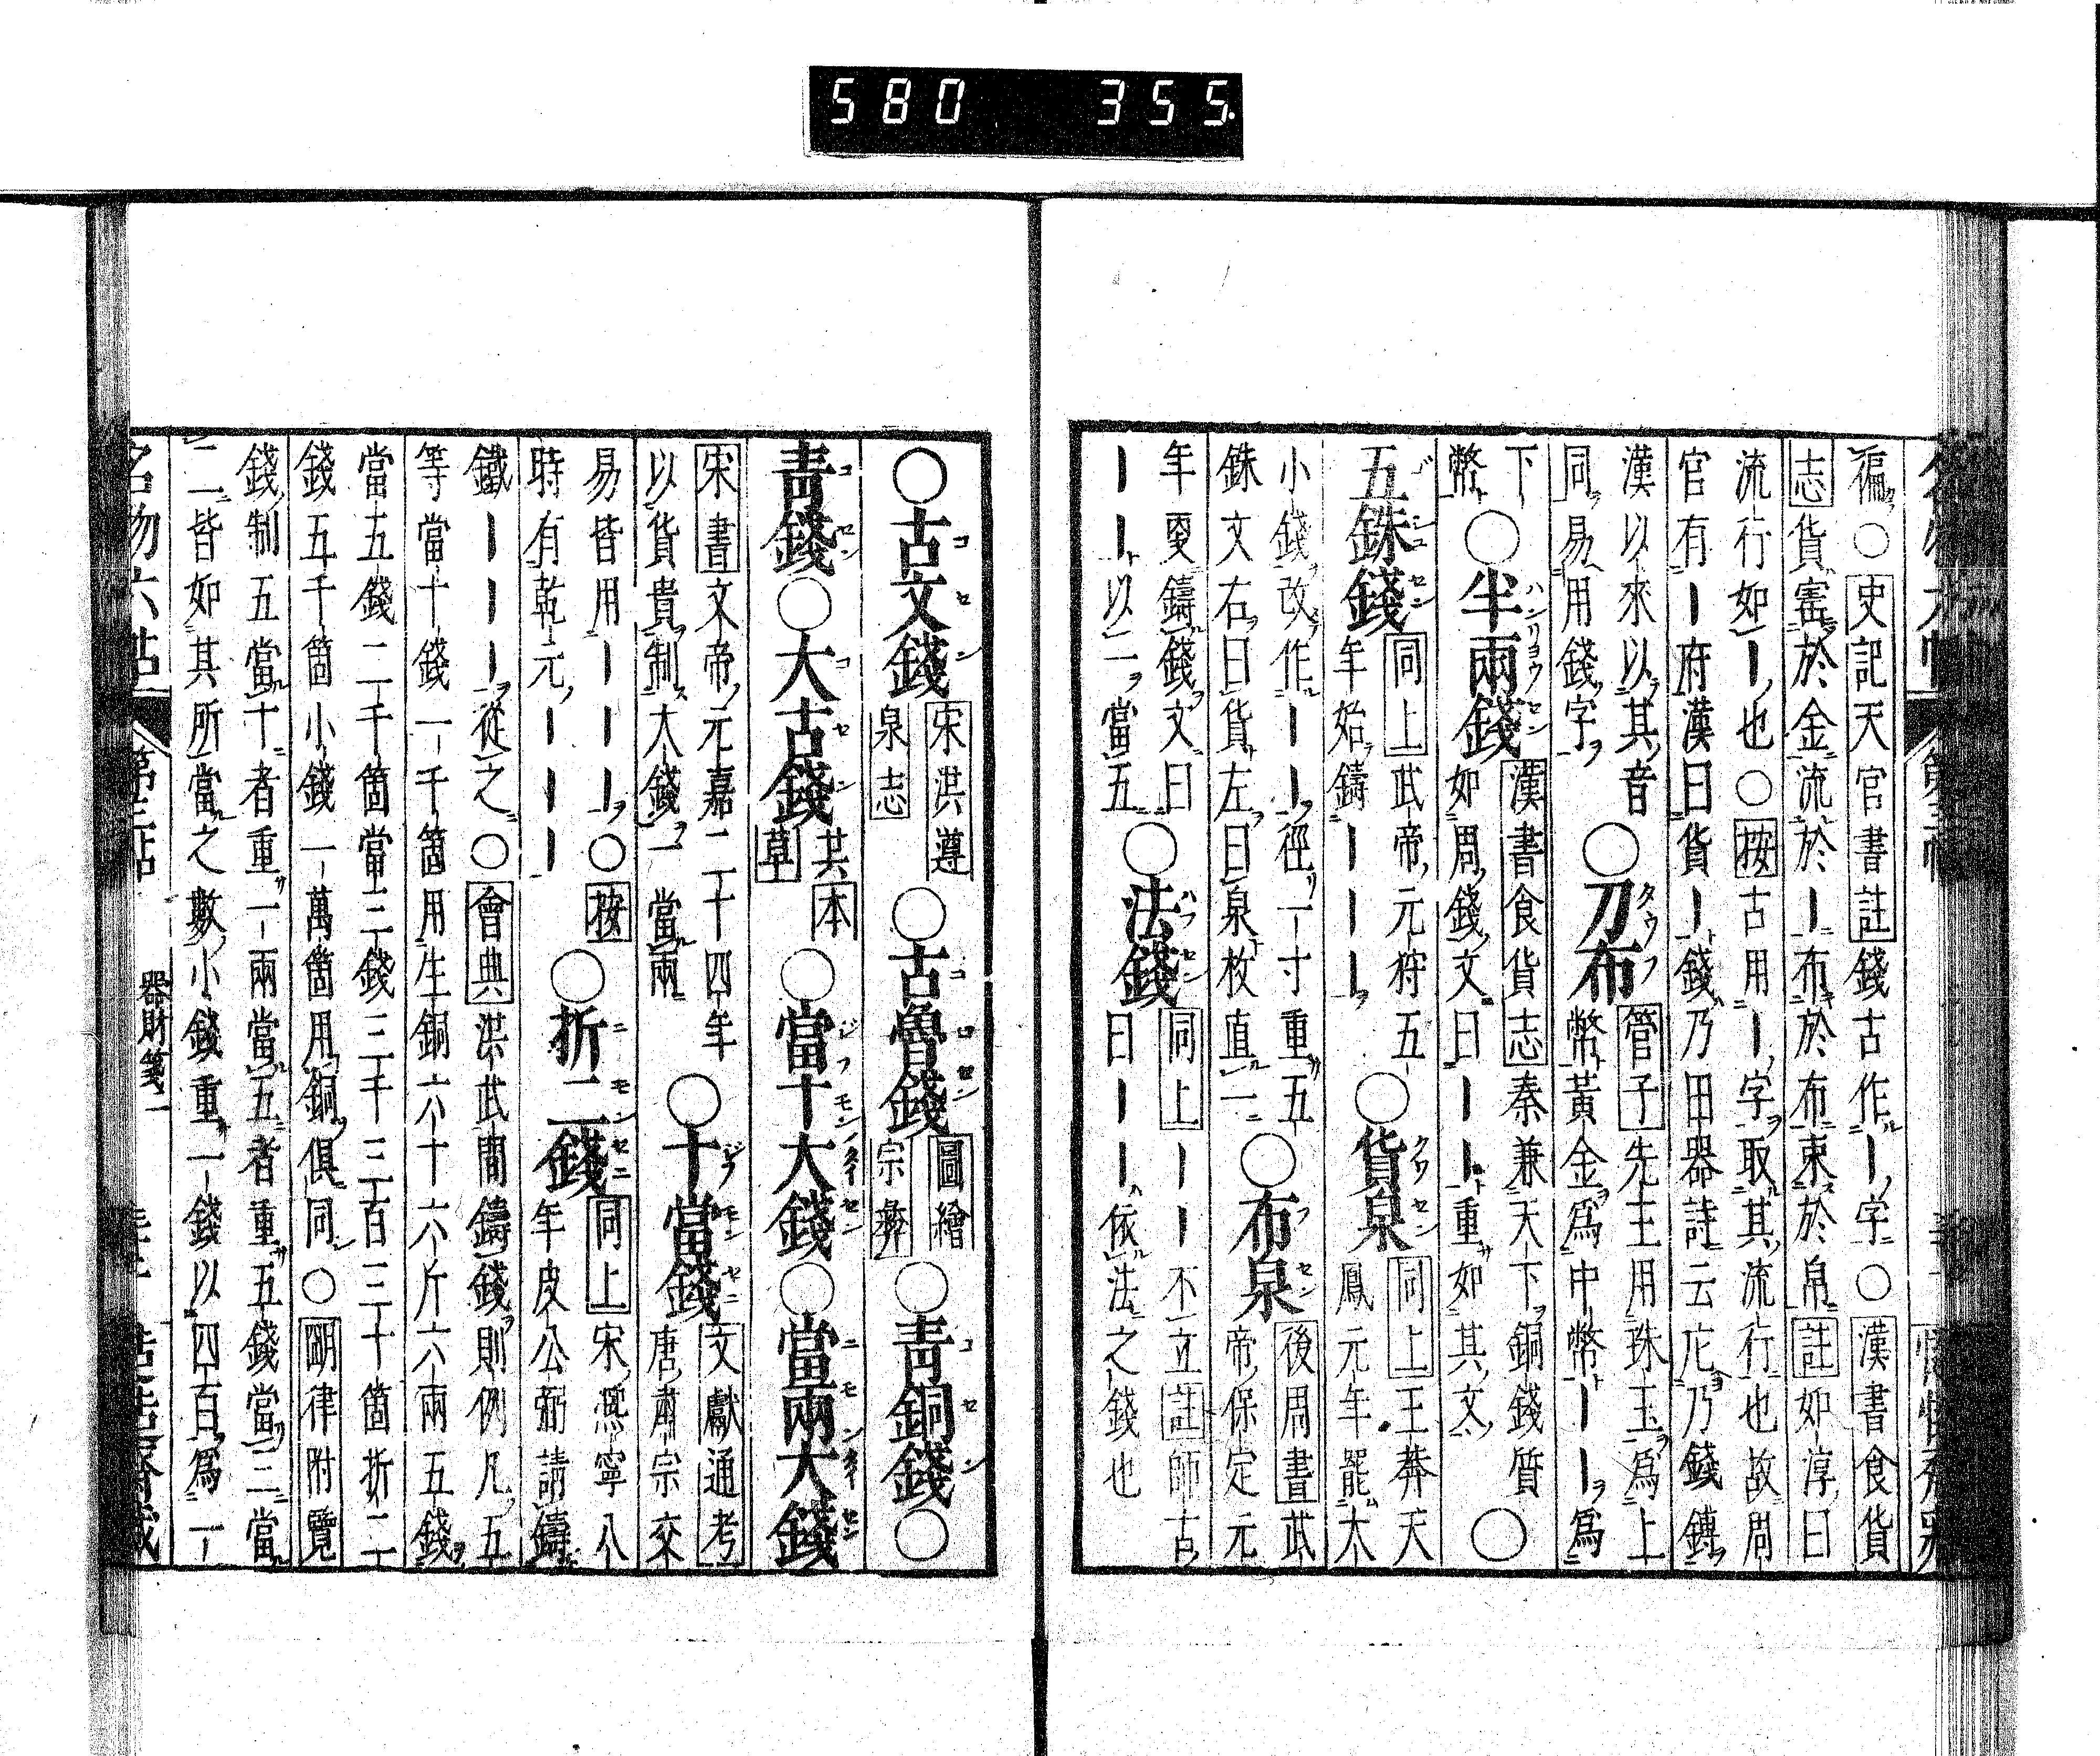 580 355
徧〇史記天官書註錢古作｜字〇漢書食貨
志貨寶於金流於｜布於布束於帛註如淳曰
流行如｜也〇按古用｜字取其流行也故周
官有｜府漢曰貨｜錢乃田器詩云庀乃錢鎛
漢以來以其音
同易用錢字
〇刀布
管子先王用珠玉爲上
幣黃金爲中幣｜｜爲
下
幣
〇半兩錢
漢書食貨志秦兼天下銅錢質
如周錢文曰｜｜重如其文
〇
五銖錢
同上武帝元狩五
年始鑄｜｜｜
〇貨泉
同上王莽天
鳳元年罷大
小錢改作｜｜徑一寸重五
銖文右曰貨左曰泉枚直一
〇布泉
後周書武
帝保定元
年更鑄錢文曰
｜｜以一當五
〇法錢
同上｜｜不立註師古
曰｜｜依法之錢也
〇古文錢
宋洪遵
泉志
〇古魯錢
圖繪
宗彝
〇青銅錢〇
青錢〇大古錢
共本
草
〇當十大錢〇當兩大錢
宋書文帝元嘉二十四年
以貨貴制大錢一當兩
〇十當錢
文獻通考
唐肅宗交
易皆用｜｜｜〇按
時有乾元｜｜｜
〇折二錢
同上宋熙寧八
年皮公弼請鑄
鐵｜｜｜從之〇會典洪武間鑄錢則例凡五
等當十錢一千箇用生銅六十六斤六兩五錢
當五錢二千箇當三錢三千三百三十箇折二
錢五千箇小錢一萬箇用銅俱同〇明律附覽
錢制五當十者重一兩當五者重五錢當三當
二皆如其所當之數小錢重一錢以四百爲一
名物六帖 第三帖 器財箋一